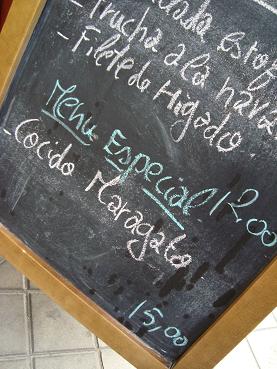 - Trucha a la nava
- Filete de Higado
Menu Especial 12,00
- Cocido Maragato
15,00